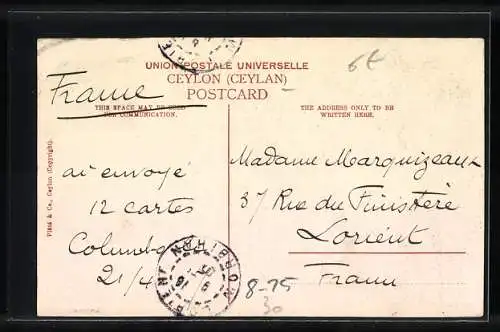 UNION POSTALE UNIVERSELLE
CEYLON (CEYLAN)
POSTCARD
6t
France
THIS SPACE MAY BE USED
FOR COMMUNICATION.
THE ADDRESS ONLY TO BE
WRITTEN HERE.
ai envoyé
12 cartes
Colombo
21/4
Madame Marquizeaux
37 Rue du Finistère
Lorient
France
Plâté & Co., Ceylon (Copyright).
MORBIHAN
8-75
30